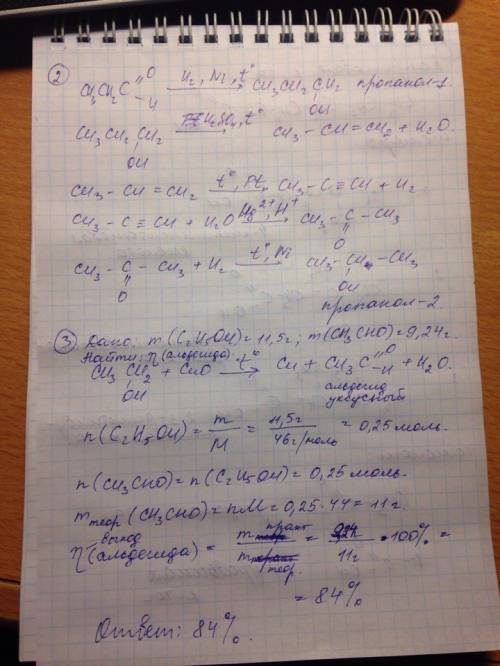 ② CH₃CH₂C=O–H →(H₂, Ni, t°) CH₃CH₂CH₂–OH пропанол-1
CH₃CH₂CH₂–OH →(H₂SO₄, t°) CH₃–CH=CH₂ + H₂O.
CH₃–CH=CH₂ →(t°, Pt) CH₃–C≡CH + H₂
CH₃–C≡CH + H₂O →(Hg²⁺, H⁺) CH₃–C(=O)–CH₃
CH₃–C(=O)–CH₃ + H₂ →(t°, Ni) CH₃–CH(OH)–CH₃
пропанол-2.
③ Дано: m(C₂H₅OH)=11,5г; m(CH₃CHO)=9,24г.
Найти: η(альдегида).
CH₃CH₂–OH + CuO →(t°) Cu + CH₃C=O–H + H₂O.
альдегид
уксусный
n(C₂H₅OH) = m/M = 11,5г/46г/моль = 0,25 моль.
n(CH₃CHO) = n(C₂H₅OH) = 0,25 моль.
m теор (CH₃CHO) = nM = 0,25·44 = 11г.
выход
η(альдегида) = m практ/m теор. = 9,24/11г · 100% =
= 84%
Ответ: 84%.